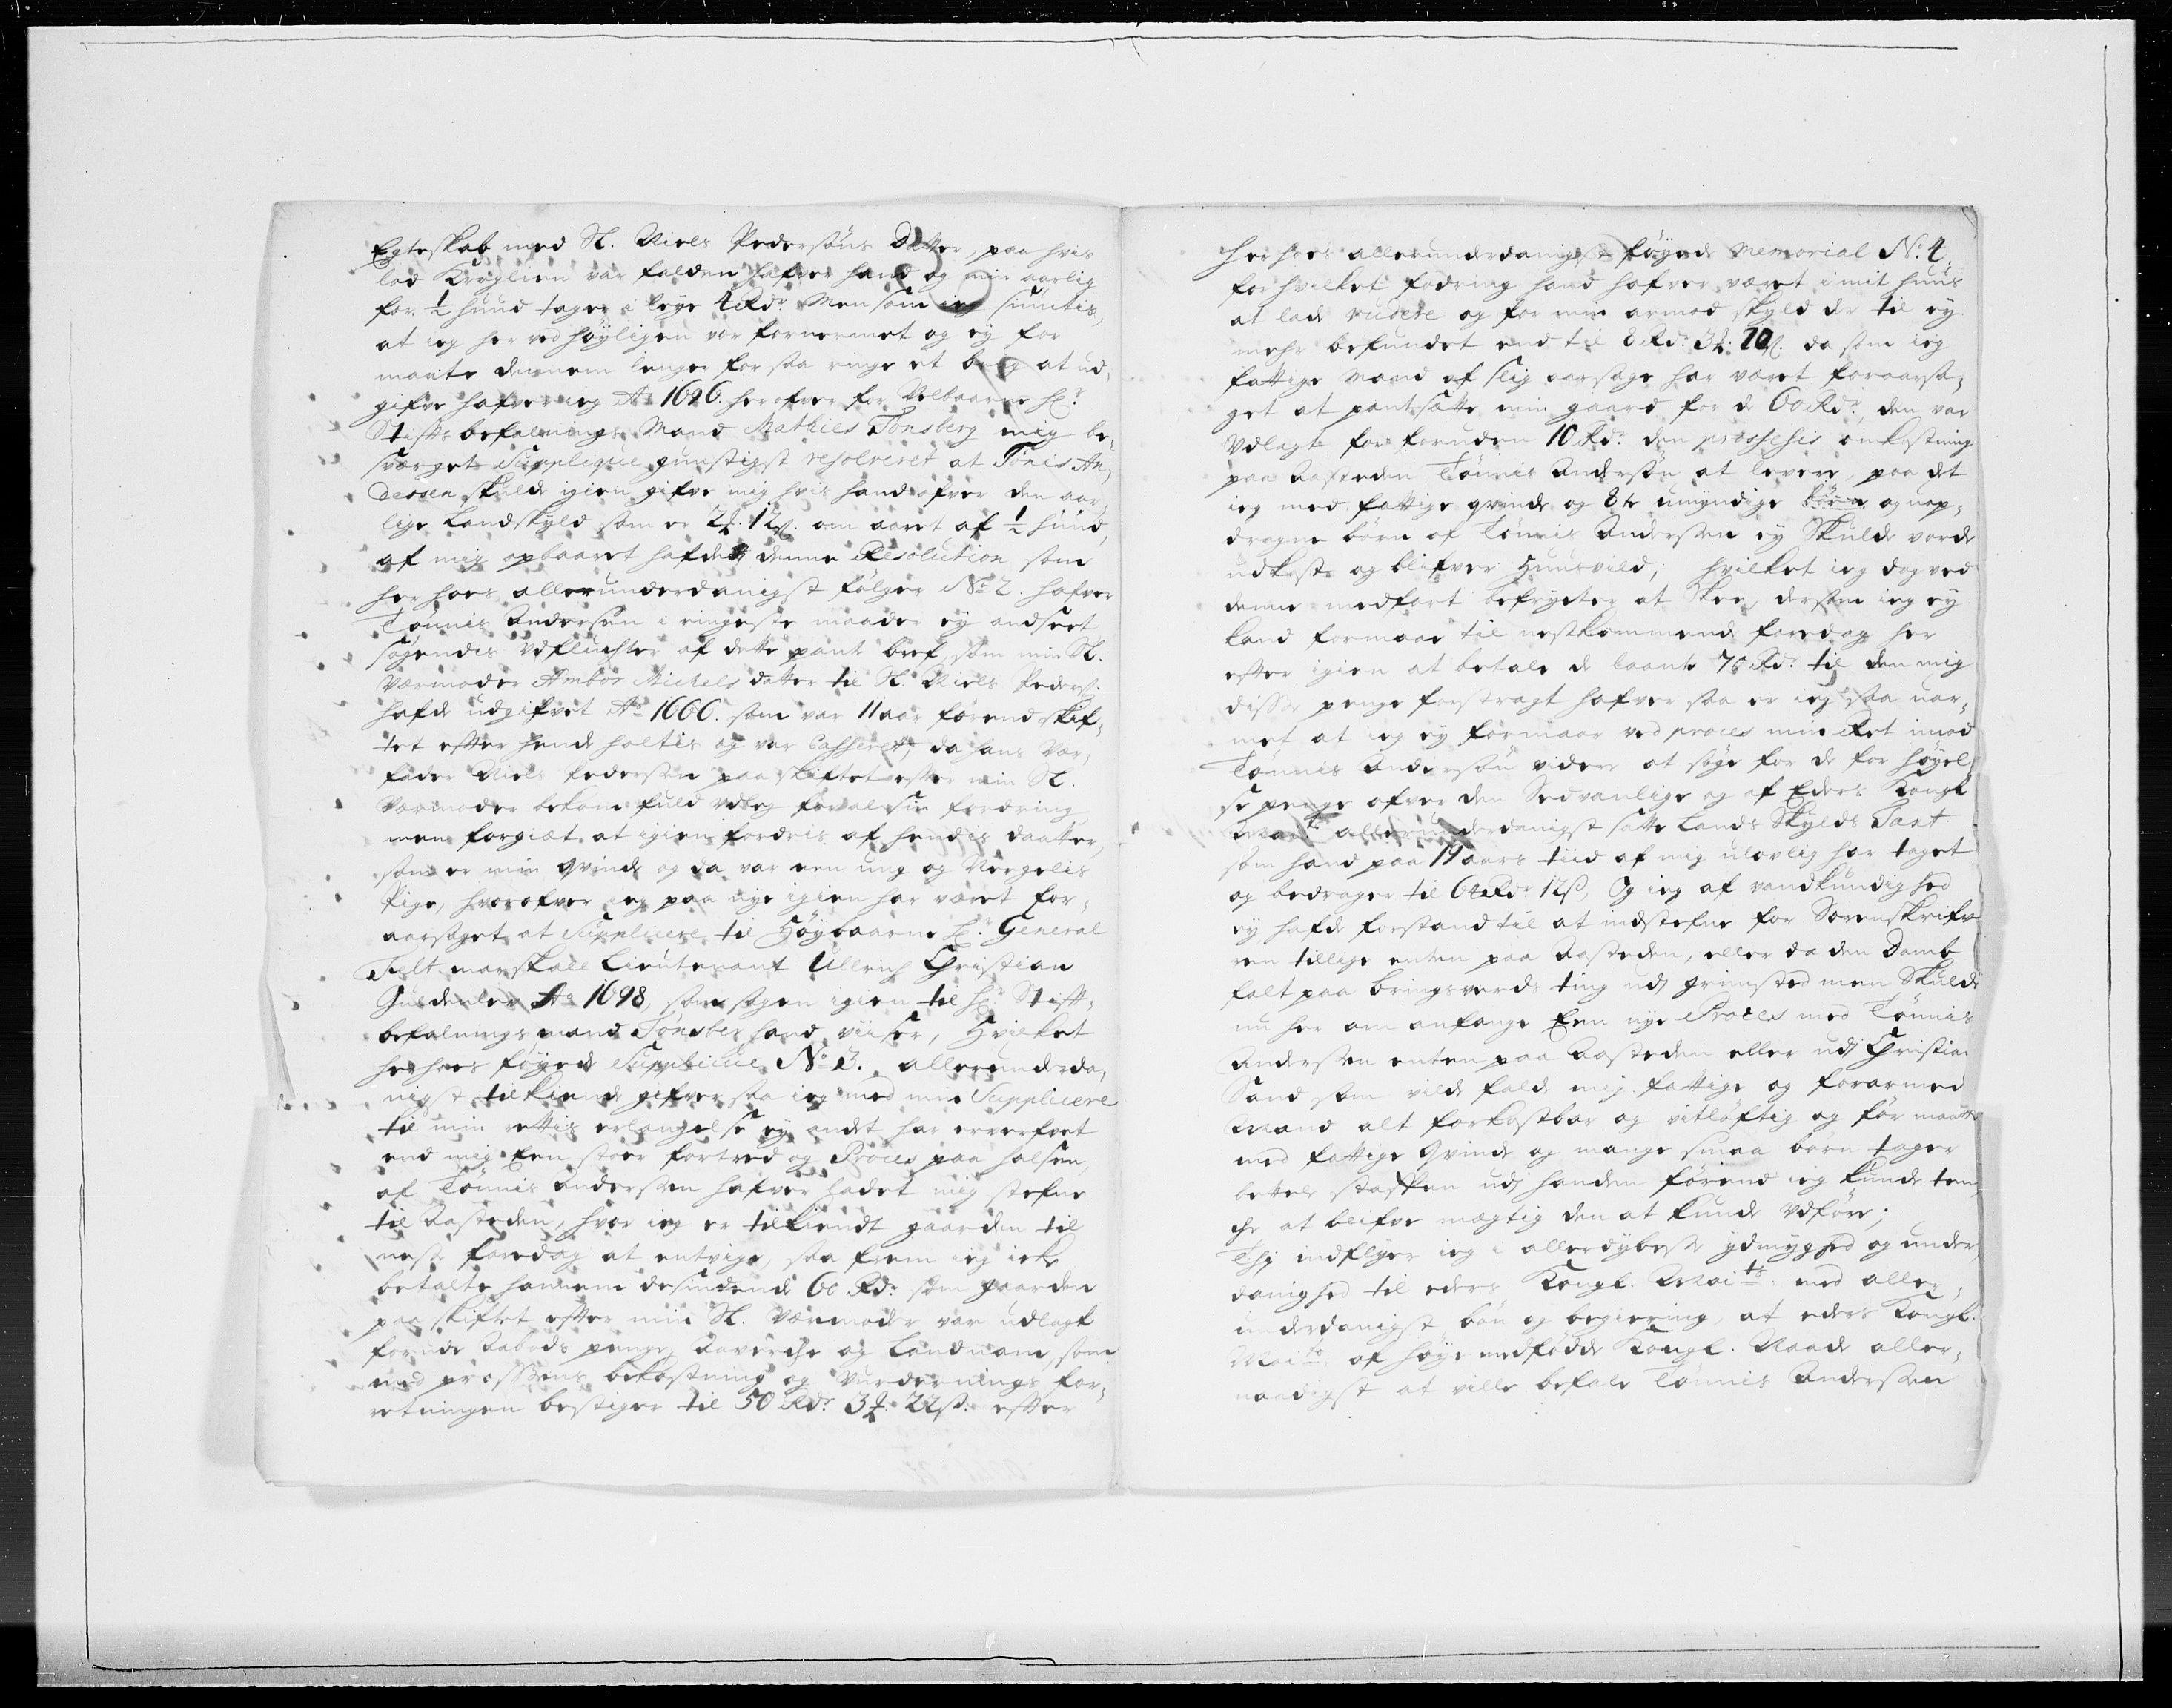 Egteskab med Sl. Niels Pedersøns Datter, paa hvis
lod Kroglien var falden hafver hand og min aarlig
for ½ hund tager i leye 4 Rdr. Men som ieg siuntis,
at ieg her ved høyligen var fornermet og ey for
maate dennem lenger for saa ringe et brug at ud,
gifve hafver ieg Ao 1696. herofver for Velbaarne Hr.
Stiftsbefalnings Mand Mathies Tonsberg mig be,
sværget Supplique gunstigst resolveret at Tønis An,
dersen skulde igien gifve mig hvis hand ofver den aar,
lige Landskyld som er 2 12 ß. om aaret af ½ hund,
af mig opbaaret hafde denne Resolution som
her hoes allerunderdanigst følger No 2. hafver
Tønnis Andersen i ringeste maader ey andseet
søgendes Udfluchter af dette pant bref, som min Sl.
Værmoder Ambør Michels datter til Sl. Niels Peders:
hafde udgifvet Ao 1666. som var 11 aar førend skif,
tet efter hende holtis og var Casseret, da hans Vær,
fader Niels Pedersen paa skiftet efter min Sl.
Værmoder bekom fuld udleg for al sin fordring
men forgiæt at igien fordris af hendis daatter,
som er min qvinde og da var een ung og Vergelis
Pige, hvorofver ieg paa nye igien har været for,
aarsaget at Supplicere til Høybaarne Hr. General
Felt marskalk Lieutenant Ullrich Christian
Guldenlev Ao 1698, som sagen igien til Hr Stift,
befalnings mand Tonsberg hand viiser, Hvilket
her hoes føyede Supplicue No 3. allerunderda,
nigst tilkiende gifver saa ieg med min Supplicere
til min rettis erlangelse ey andet har erverfvet
end mig Een stoer fortred og Proces paa halsen,
af Tønnis Andersen hafver ladet mig stefne
til Aasteden, hvor ieg er tilkiendt gaarden til
nest faredag at entvige, saa frem ieg icke
betalte hannem desinende 60 Rdr. som gaarden
paa skiftet efter min Sl. Værmoder var udlagt
foruden Aabods penge, Aaverche og Landnam som
med prossens bekostning og Vurderings for,
retningen bestiger til 50 Rdr. 3 22 ß. efter
her hoes allerunderdanigst føyede Memorial No. 4.
for hvilket fodring hand hafver været i mit huus
at lade vudere og for min armod skyld der til ey
mehr befundet end til 8 Rdr. 3 20 ß. da som ieg
fattige Mand af slig aarsage har været foraarsa,
get at pantsætte min gaard for de 60 Rdr. den var
Udlagt for foruden 10 Rdr. den prossesis omkostning
paa Aasteden Tønnis Andersøn at levere, paa det
ieg med fattige qvinde og 8te umyndige børn og uop,
dragne børn af Tønnis Andersen ey Skulde vorde
udkast og blifver Huusvild; hvilket ieg dog ved
denne medfart befrygter at skee, dersom ieg ey
kand formaae til nestkommende faredag her
efter igien at betale de laante 70 Rdr. til den mig
disse penge forstragt hafver saa er ieg saa uar,
met at ieg ey formaar ved proces min Ret imod
Tønnis Andersøn videre at søge for de for høyel
se penge ofver den Sedvanlige og af Eders Kongl
Mayts allerunderdanigst satte Lands Skylds Taxt
som hand paa 19 aars tiid af mig ulovlig har taget
og bedrager til 64 Rdr 12 ß, Og ieg af vandkundighed
ey hafde forstand til at indstefne for Sorenskrifve
ren tillige enten paa Aasteden, eller da den Domb
falt paa Bringsverds ting udj Grimsted men Skulde
nu her om anfange Een nye Proces med Tønnis
Andersen enten paa Aasteden eller udj Christian
Sand som vilde falde mig fattige og forarmed
Mand alt forkostbar og vitløftig og før maatte
med fattige Qvinde og mange smaa børn tager
bettele stafven udj handen førend ieg kunde ten,
che at blifve mægtig den at kunde Udføre;
Thj indflyer ieg i allerdybeste ydmyghed og under,
danighed til eders Kongl. Maits. med aller,
underdanigst bøn og begiering, at eders Kongl:
Maits af høye medfødde Kongl. Naade aller,
naadigst at ville befale Tønnis Andersen